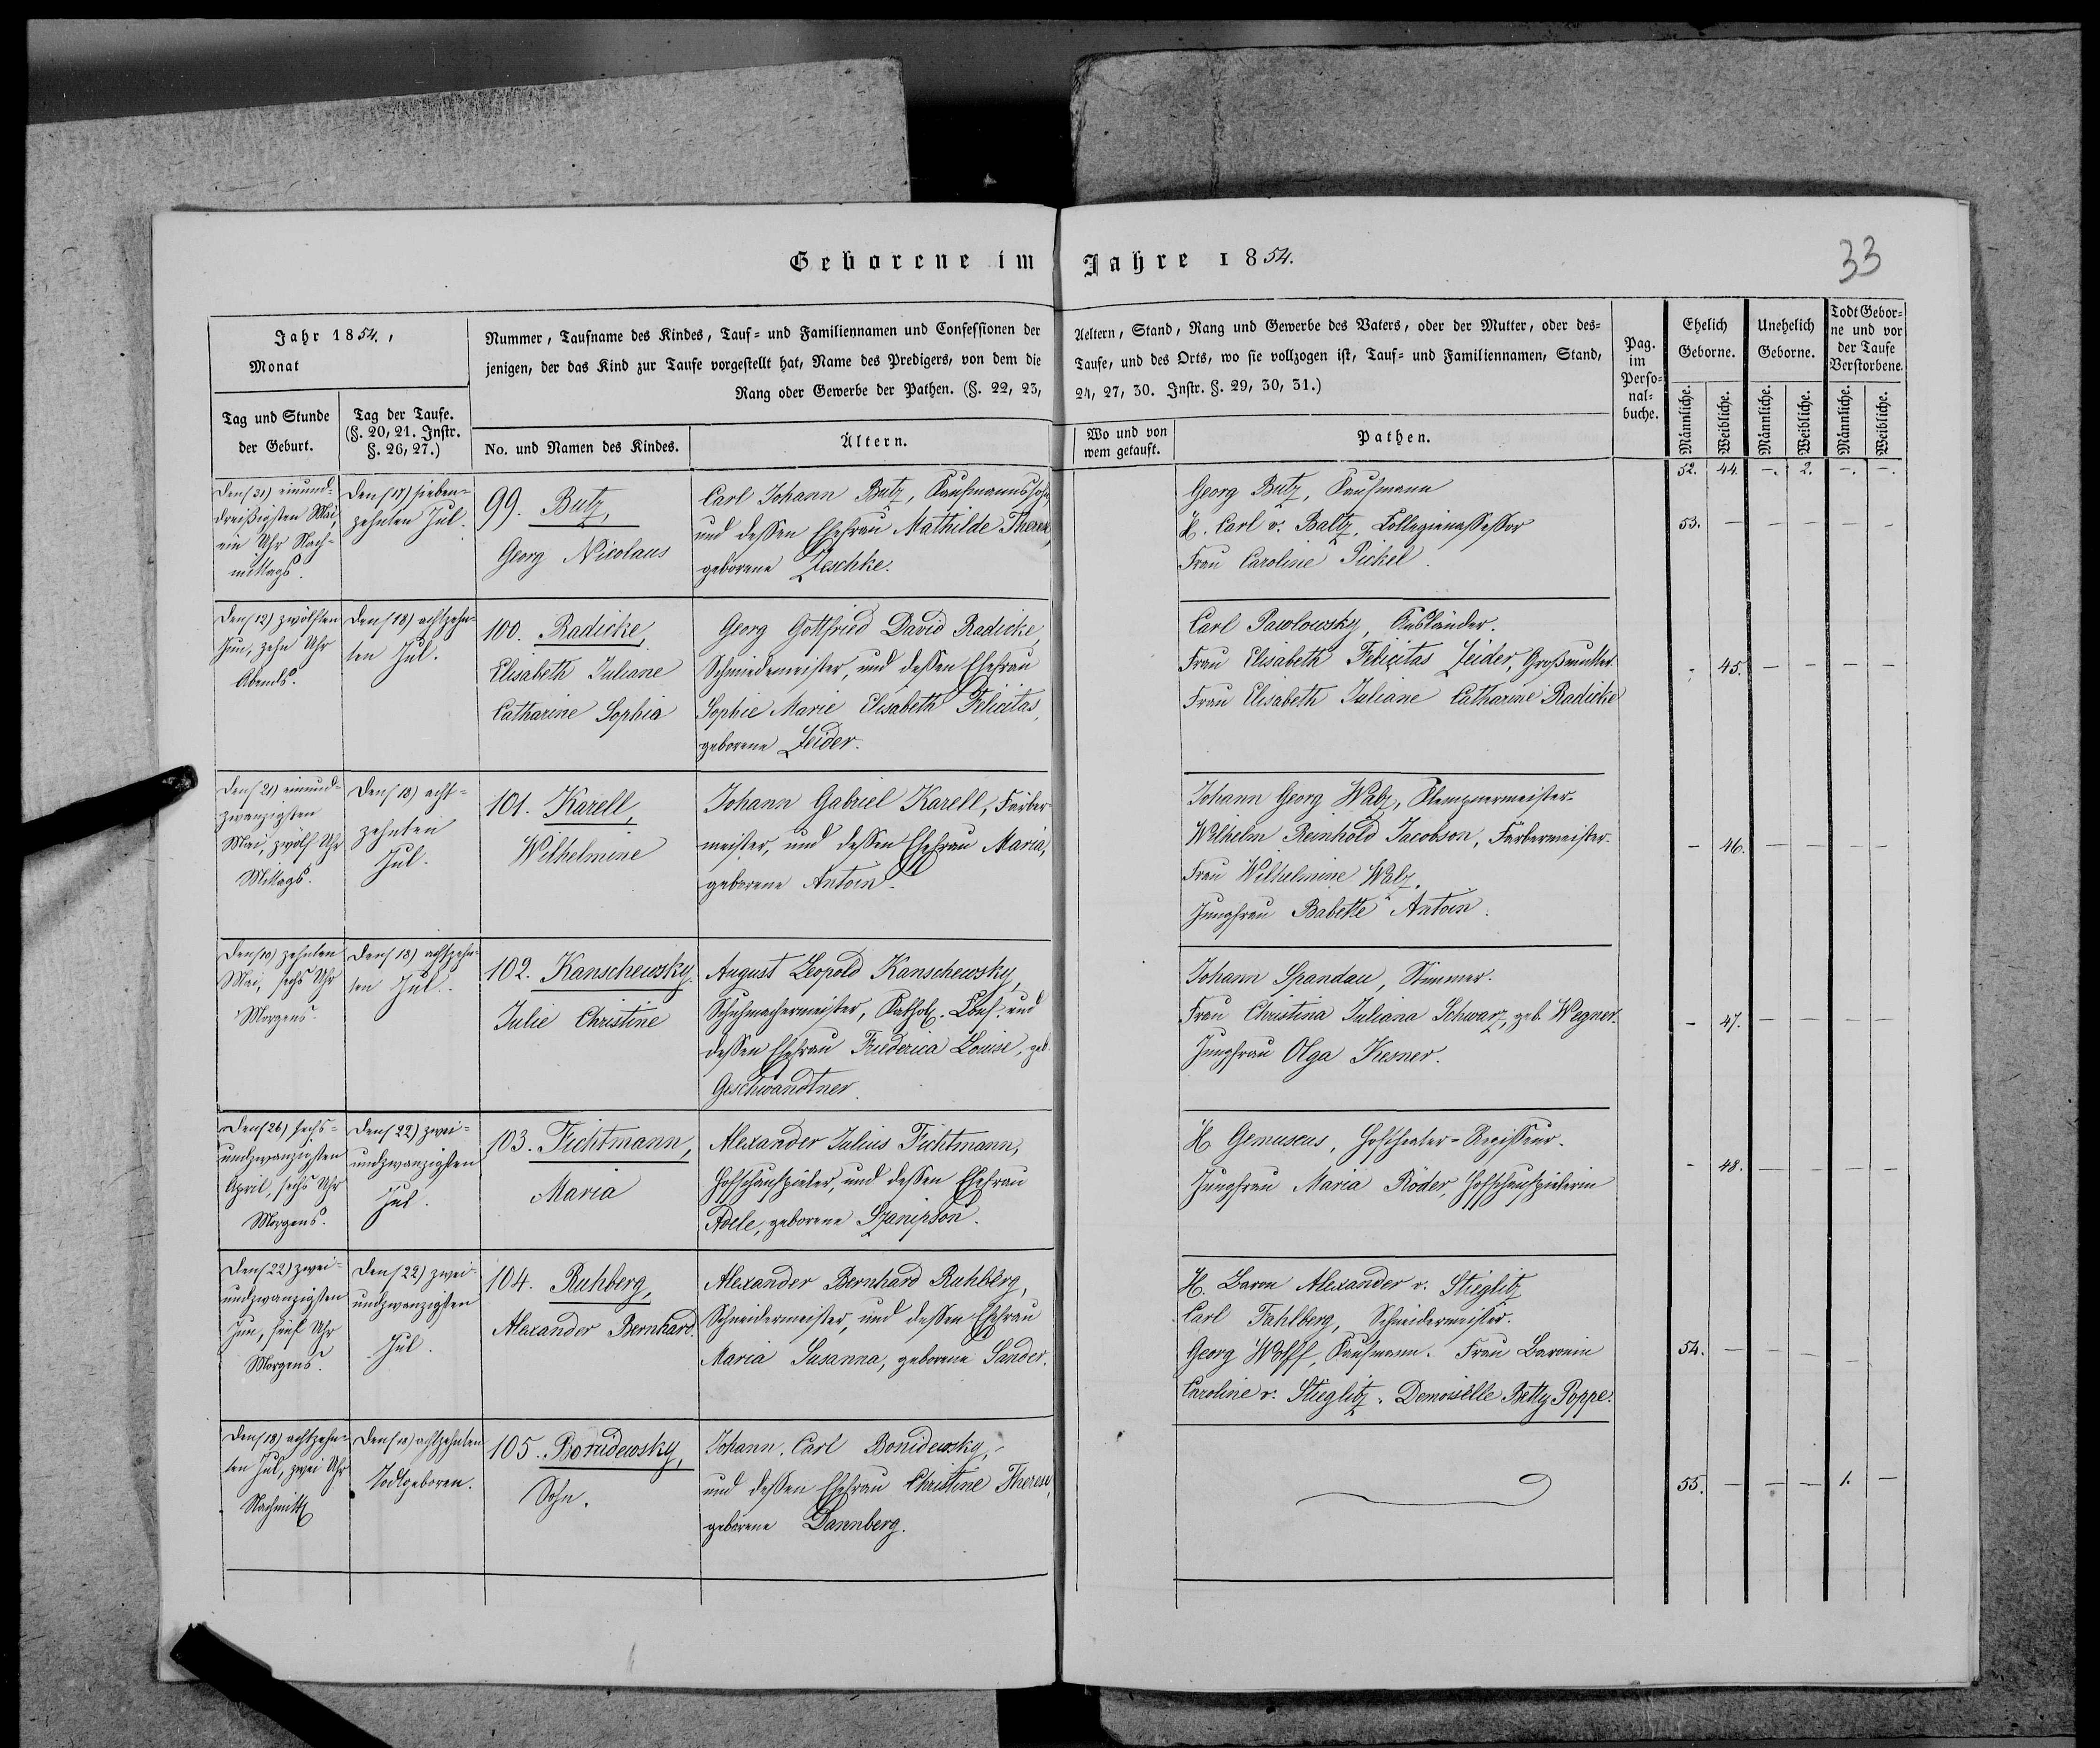 Geborene im Jahre 1854.
33
Jahr 1854.,
Monat
Tag und Stunde
der Geburt.
Tag der Taufe.
(§. 20, 21. Instr.
§. 26, 27.)
Nummer, Taufname des Kindes, Tauf- und Familiennamen und Confessionen der Aeltern, Stand, Rang und Gewerbe des Vaters, oder der Mutter, oder des-
jenigen, der das Kind zur Taufe vorgestellt hat, Name des Predigers, von dem die Taufe, und des Orts, wo sie vollzogen ist, Tauf- und Familiennamen, Stand,
Rang oder Gewerbe der Pathen. (§. 22, 23, 24, 27, 30. Instr. §. 29, 30, 31.)
No. und Namen des Kindes.
Ältern.
Wo und von
wem getauft.
Pathen.
Pag.
im
Perso-
nal-
buche.
Ehelich
Geborne.
Unehelich
Geborne.
Todt Gebor-
ne und vor
der Taufe
Verstorbene.
Männliche.
Weibliche.
Männliche.
Weibliche.
Männliche.
Weibliche.
52. 44. -. 2. -. -.
Den (31) einund-
dreißigsten Mai,
ein Uhr Nach-
mittags.
Den (17) sieben-
zehnten Jul.
99. Butz,
Georg Nicolaus
Carl Johann Butz, Kaufmannssohn,
und dessen Ehefrau Mathilde Therese,
geborene Zeschke.
Georg Butz, Kaufmann
H. Carl v. Baltz, Collegienassessor
Frau Caroline Pickel.
53. — — — — —
Den (12) zwölften
Jun, zehn Uhr
Abends.
Den (18) achtzehn-
ten Jul.
100. Radicke,
Elisabeth Juliane
Catharine Sophia
Georg Gottfried David Radicke,
Schmiedemeister, und dessen Ehefrau
Sophie Marie Elisabeth Felicitas,
geborene Zeider.
Carl Pawlowsky, Ausländer.
Frau Elisabeth Felicitas Zeider, Großmutter.
Frau Elisabeth Juliane Catharine Radicke
- 45. — — — —
Den (21) einund-
zwanzigsten
Mai, zwölf Uhr
Mittags.
Den (18) acht-
zehnten
Jul.
101. Karell,
Wilhelmine
Johann Gabriel Karell, Färber-
meister, und dessen Ehefrau Maria,
geborene Antoin.
Johann Georg Walz, Klempnermeister.
Wilhelm Reinhold Jacobson, Färbermeister.
Frau Wilhelmine Walz.
Jungfrau Babette Antoin.
- 46. — — — —
Den (10) zehnten
Mai, sechs Uhr
Morgens.
Den (18) achtzehn-
ten Jul.
102. Kanschewsky.
Julie Christine
August Leopold Kanschewsky,
Schuhmachermeister, Kathol. Conf. und
dessen Ehefrau Friederica Louise, geb.
Geschwandtner.
Johann Spandau, Stimmer.
Frau Christina Juliana Schwarz, geb. Wegner.
Jungfrau Olga Kesner.
- 47. — — — —
Den (26) sechs-
undzwanzigsten
April, sechs Uhr
Morgens.
Den (22) zwei-
undzwanzigsten
Jul.
103. Fichtmann,
Maria
Alexander Julius Fichtmann,
Hofschauspieler, und dessen Ehefrau
Adele, geborene
H Gemuseus, Hoftheater-Regisseur.
Jungfrau Maria Röder, Hofschauspielerin
- 48. — — — —
Den (22) zwei-
undzwanzigsten
Jun, fünf Uhr
Morgens.
Den (22) zwei-
undzwanzigsten
Jul.
104. Ruhberg,
Alexander Bernhard.
Alexander Bernhard Ruhberg,
Schneidermeister, und dessen Ehefrau
Maria Susanna, geborene Sander.
H. Baron Alexander v. Stieglitz
Carl Fahlberg, Schneidermeister.
Georg Wolff, Kaufmann. Frau Baronin
Caroline v. Stieglitz. Demoiselle Betty Poppe.
54. — — — —
Den (18) achtzehn-
ten Jul, zwei Uhr
Nachmitt.
Den (18) achtzehnten
Todtgeboren.
105. Bonidewsky,
Sohn.
Johann Carl Bonidewsky,
und dessen Ehefrau Christine Therese,
geborene Dannberg.
55. — — — 1. —